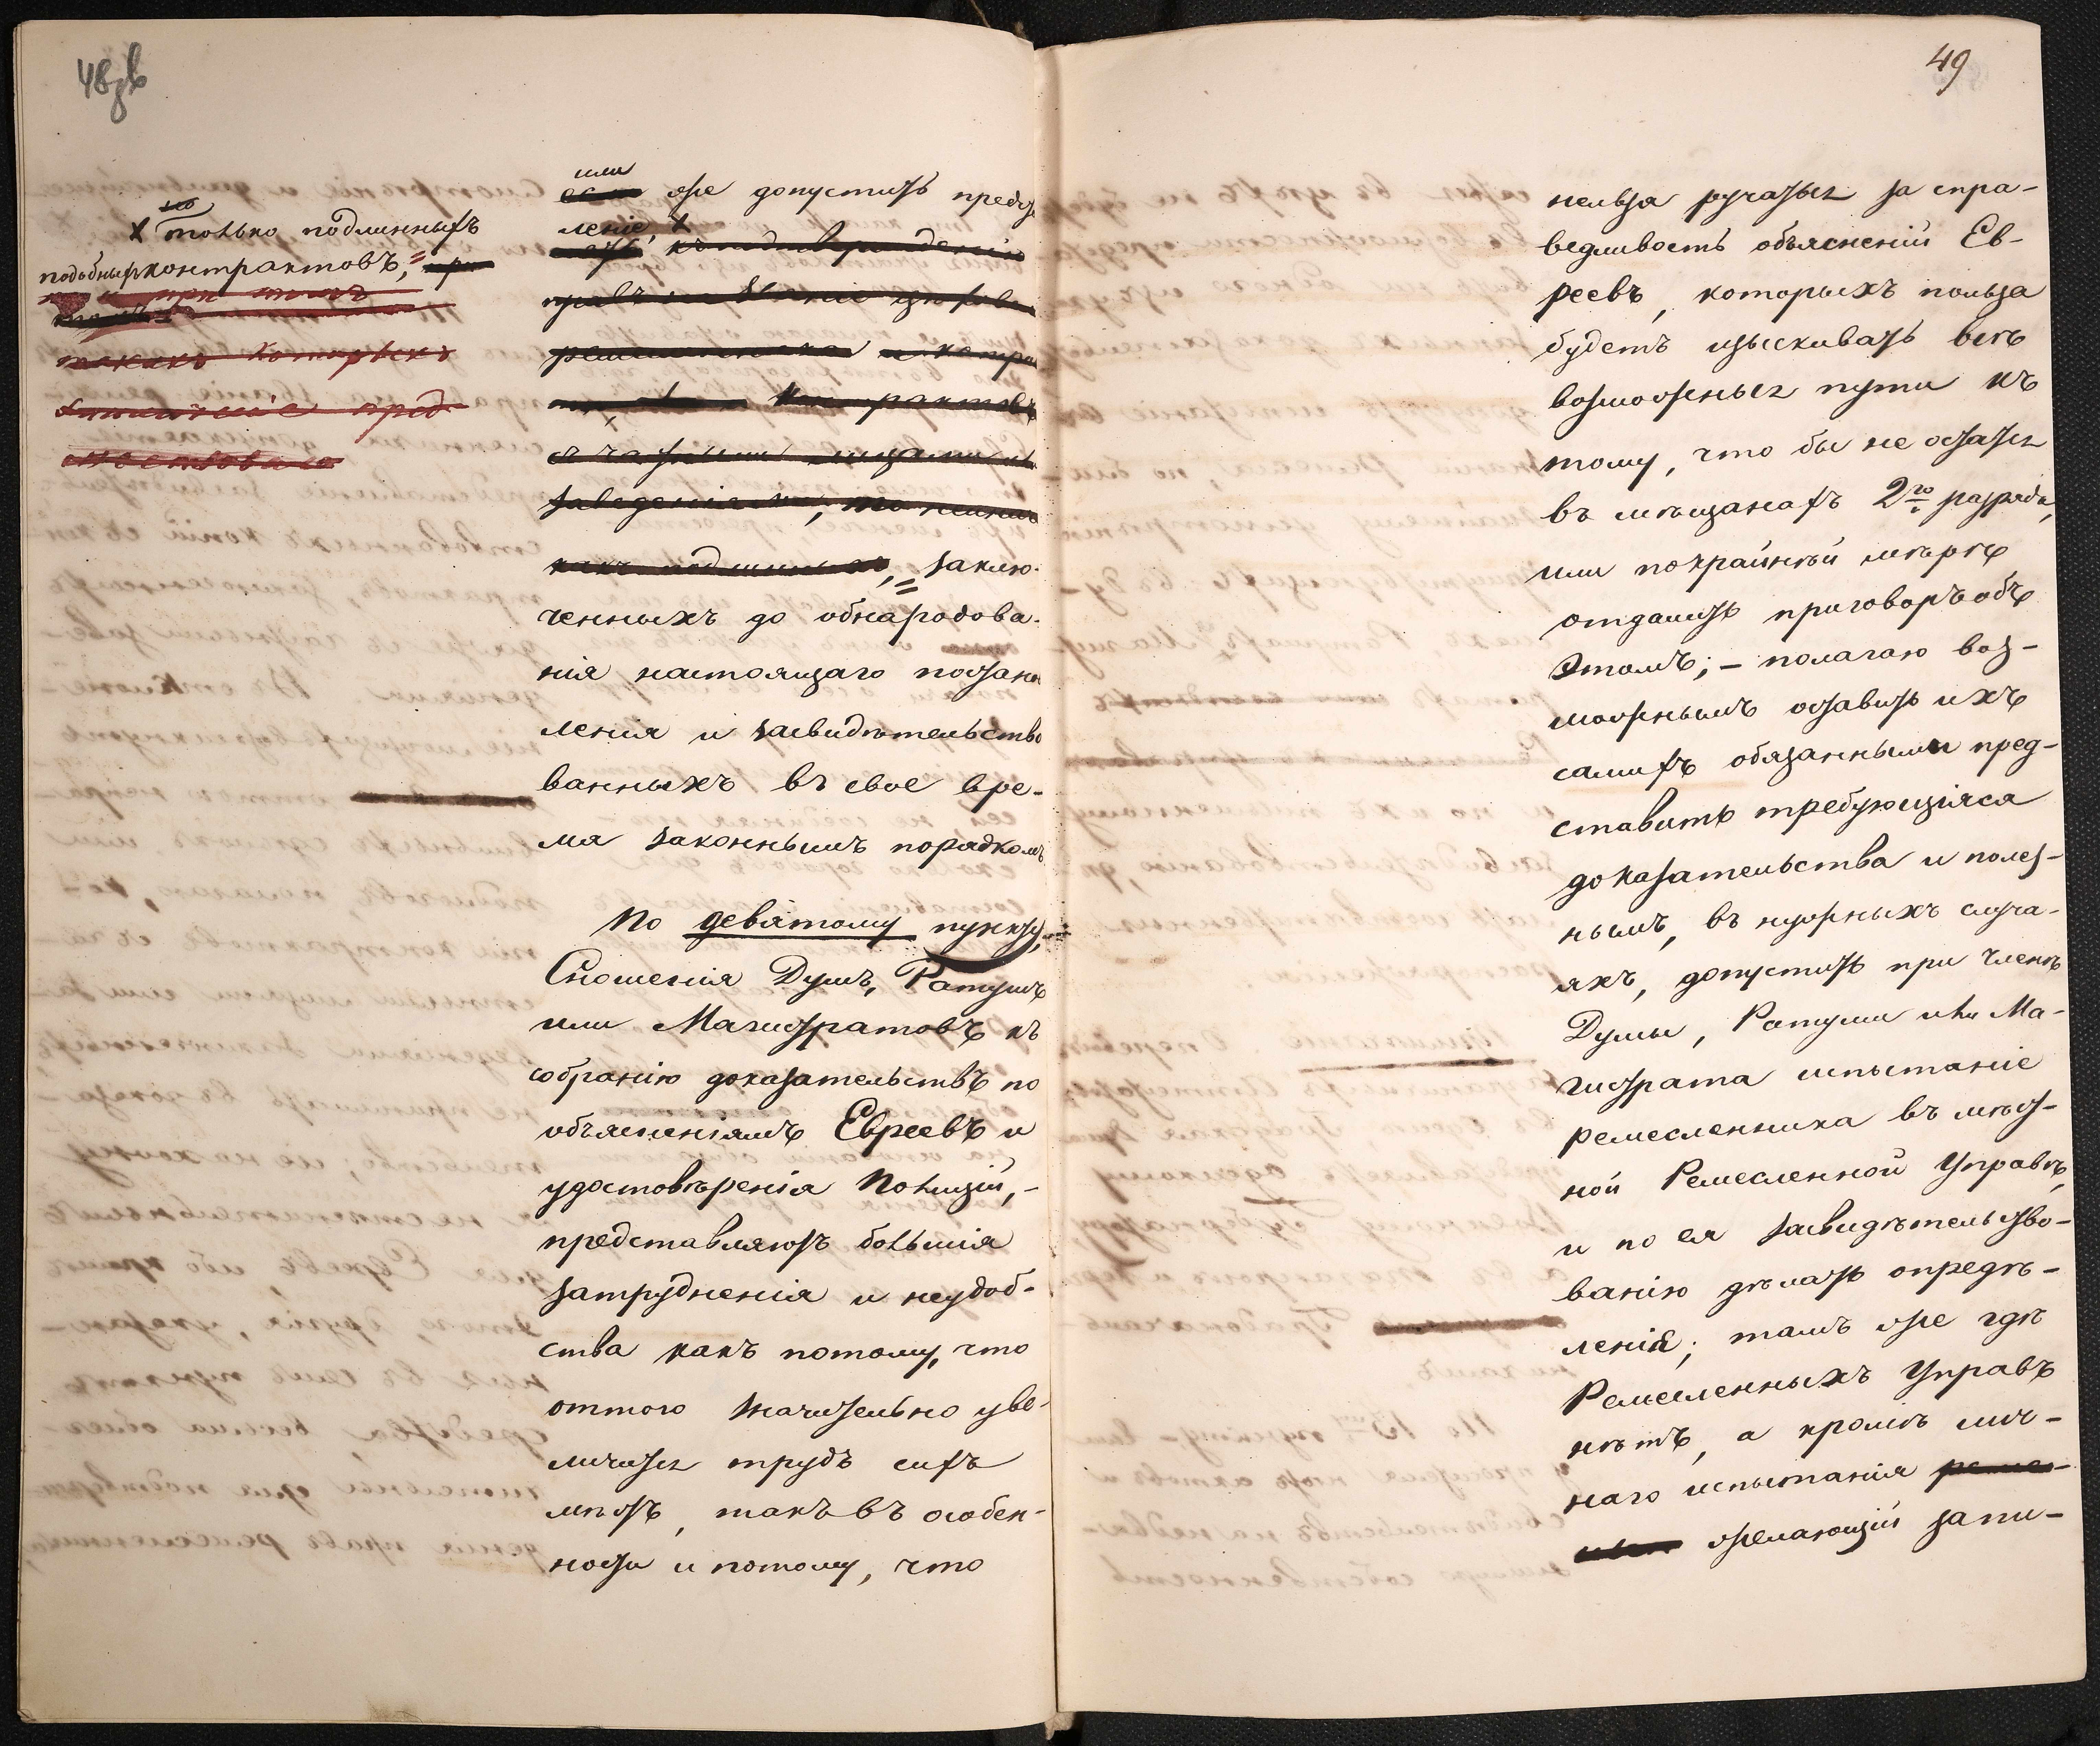 48зв
но
х только подлинныхъ
подобныхъ контрактовъ, при
при томъ
такихъ которыхъ
заключеніе пред-
или
если же допустить предъяв
леніе х
къ подтвержденію
правъ на званіе цеховаго
ремесленника и контра
Контрактовъ
съ частными лицами и
заведеніями, то не иначе
какъ подлинныхъ, заклю-
ченныхъ до обнародова-
нія настоящаго постано
вленія и засвидѣтельство
ванныхъ въ свое вре-
мя законнымъ порядкомъ
По девятому пункту,
Сношенія Думъ, Ратушъ
или Магистратовъ къ
собранію доказательствъ по
объясненіямъ Евреевъ и
удостовѣренія Полицій, -
представляютъ большія
затрудненія и неудоб-
ства какъ потому, что
оттого значительно уве-
личится трудъ сихъ
мѣстъ, такъ въ особен-
ности и потому, что
49
нельзя ручаться за спра-
ведливость объясненій Ев-
реевъ, которыхъ польза
будетъ изыскивать всѣ
возможные пути къ
тому, что бы не остаться
въ мѣщанахъ 2го разряда,
или по крайнѣй мѣрѣ
отдалить приговоръ объ
этомъ; - полагаю воз-
можнымъ оставить ихъ
самихъ обязанными пред-
ставить требующіяся
доказательства и полез-
нымъ, въ нужныхъ случа-
яхъ, допустить при Членѣ
Думы, Ратуши или Ма-
гистрата испытаніе
ремесленника въ мѣст-
ной Ремесленной Управѣ,
и по ея засвидѣтельство-
ванію дѣлать опредѣ-
ленія; тамъ же гдѣ
Ремесленныхъ Управъ
нѣтъ, а кромѣ лич-
наго испытанія
желающій запи-